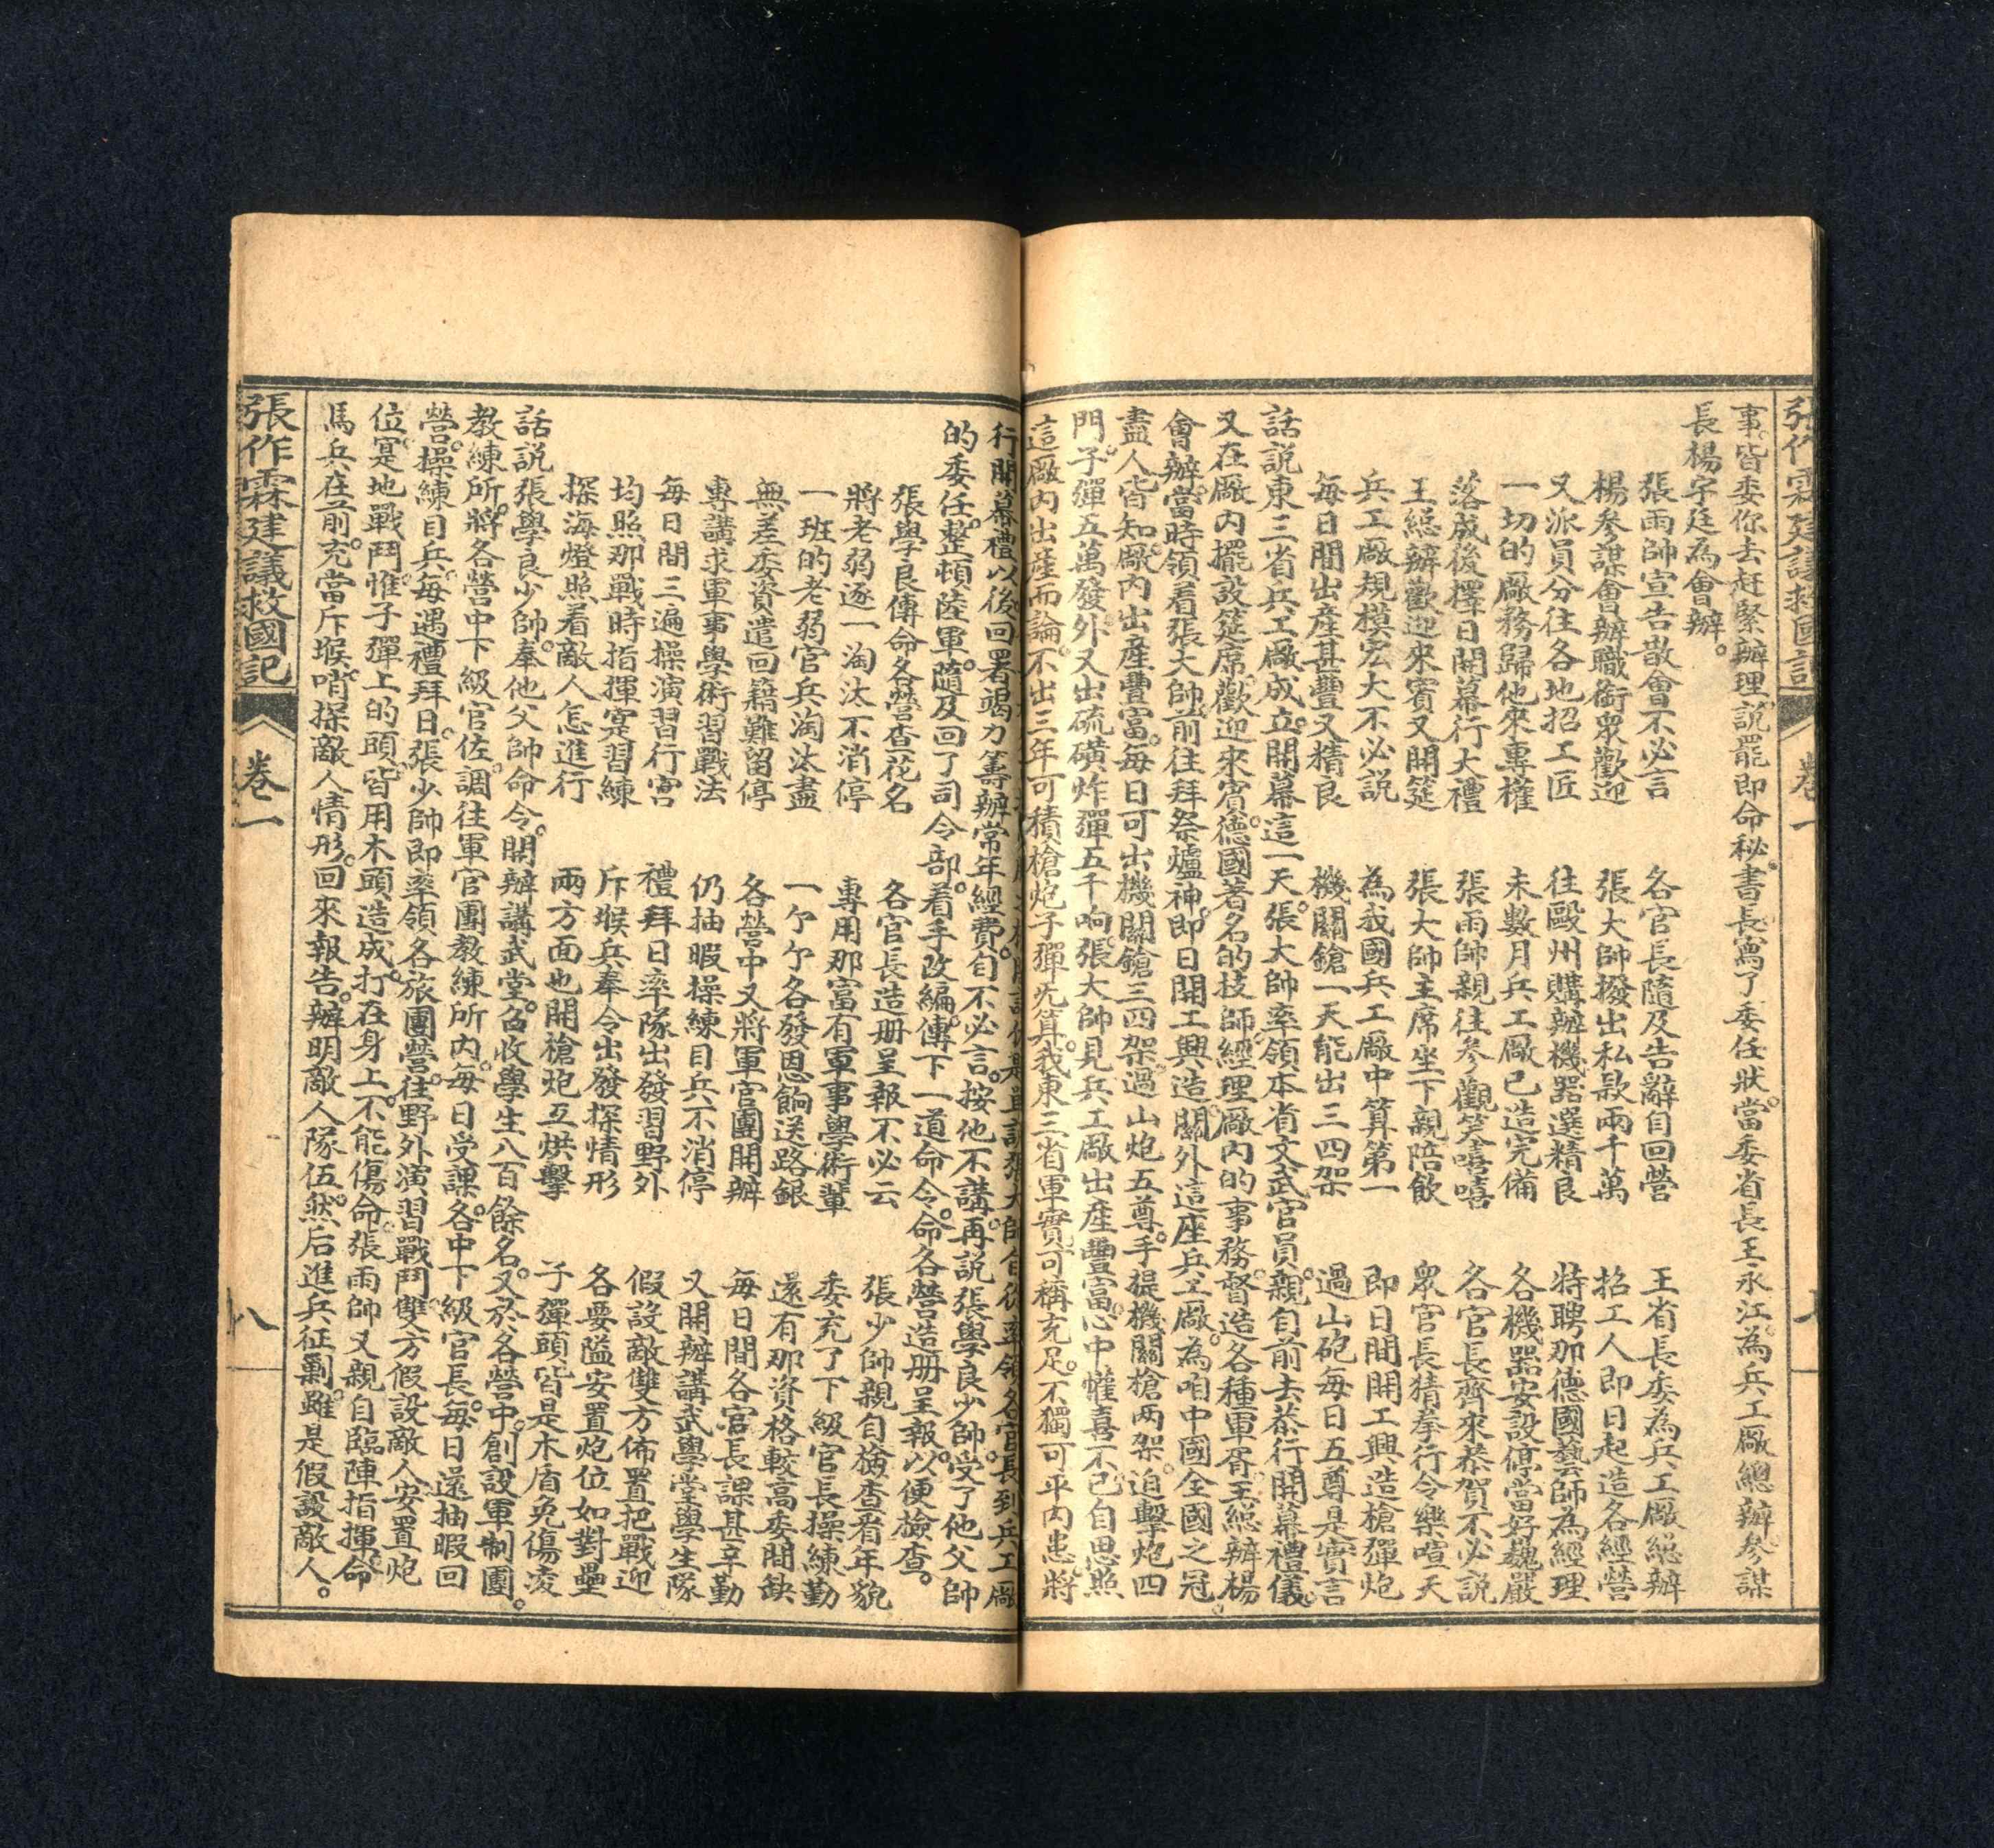 張作霖建議救國記
卷一
事。皆委你去赶緊辦理。說罷即命秘書長寫了委任狀。當委省長王永江。為兵工廠總辦。參謀
長楊宇廷為會辦。
張雨帥宣告散會不必言　各官長隨及告辭自回營　王省長委為兵工廠總辦
楊參謀會辦職銜眾歡迎　張大帥撥出私款兩千萬　招工人即日起造各經營
又派員分往各地招工匠　往毆州購辦機器選精良　特聘那德國藝師為經理
一切的廠務歸他來專權　未數月兵工廠已造完備　各機器安設停當好巍嚴
落成後擇日開幕行大禮　張雨帥親往參觀笑嘻嘻　各官長齊來恭賀不必説
王總辦歡迎來賓又開筵　張大帥主席坐下親陪飲　眾官長猜拳行令樂喧天
兵工廠規模宏大不必説　為我國兵工廠中算第一　即日間開工興造槍彈炮
每日間出產甚豐又精良　機關鎗一天能出三四架　過山砲每日五尊是實言
話説東三省兵工廠成立。開幕這一天。張大帥率領本省文武官員。親自前去恭行開幕禮儀。
又在廠內擺設筵席。歡迎來賓。德國著名的技師經理廠內的事務。督造各種軍胥。王總辦楊
會辦。當時領着張大帥。前往拜祭爐神。即日開工興造。關外這座兵工廠。為咱中國全國之冠。
盡人皆知。廠內出產豐富。每日可出機關鎗三四架。過山炮五尊。手提機關槍两架。迫擊炮四
門。子彈五萬發外。又出硫磺炸彈五千响。張大帥見兵工廠出產豐富。心中懽喜不已。自思照
這廠內出產而論。不出三年可積槍炮子彈旡算。我東三省軍實可稱充足。不獨可平內患。將
行開幕禮以後。回署竭力籌辦常年經費。自不必言。按他不講。再説張學良少帥。受了他父帥
的委任。整頓陸軍。隨及回了司令部。着手改編。傳下一道命令。命各營造册呈報。以便檢查。
張學良傳命各營查花名　各官長造册呈報不必云　張少帥親自檢查看年貌
將老弱逐一淘汰不消停　專用那富有軍事學術輩　委充了下級官長操練勤
一班的老弱官兵淘汰盡　一个个各發恩餉送路銀　還有那資格較高委間缺
無差委資遣回籍難留停　各營中又將軍官團開辦　每日間各官長課甚辛勤
專講求軍事學術習戰法　仍抽暇操練目兵不消停　又開辦講武學堂學生隊
每日間三遍操演習行宮　禮拜日率隊出發習野外　假設敵雙方佈置把戰迎
均照那戰時指揮寔習練　斥堠兵奉令出發探情形　各要隘安置炮位如對壘
探海燈照着敵人怎進行　兩方面也開槍炮互烘擊　子彈頭皆是木盾免傷凌
話説張學良少帥。奉他父帥命令。開辦講武堂。召收學生八百餘名。又於各營中。創設軍制團。
教練所。將各營中下級官佐。調往軍官團教練所內。每日受課。各中下級官長。每日還抽暇回
營。操練目兵。每遇禮拜日。張少帥即率領各旅團營。往野外演習戰鬥。雙方假設敵人。安置炮
位。寔地戰鬥。惟子彈上的頭。皆用木頭造成。打在身上。不能傷命。張雨帥又親自臨陣指揮。命
馬兵在前。充當斥堠。哨探敵人情形。回來報告。辦明敵人隊伍。然后進兵征剿。雖是假設敵人。
張作霖建議救國記
卷一
八